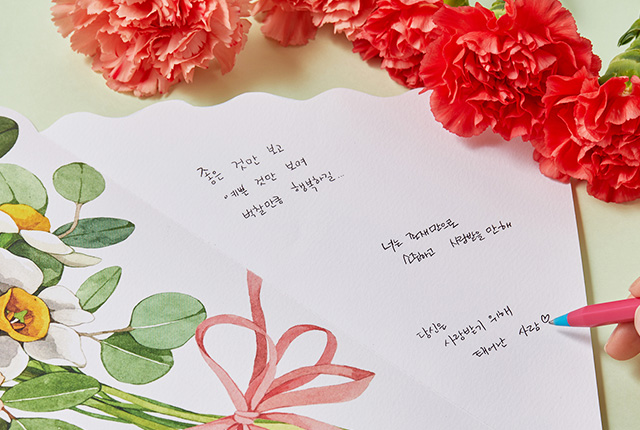 좋은 것만 보고
예쁜 것만 보며
벅찰만큼 행복하길...
너는 존재만으로
소중하고 사랑받을 만해
당신은
사랑받기 위해
태어난 사람♡